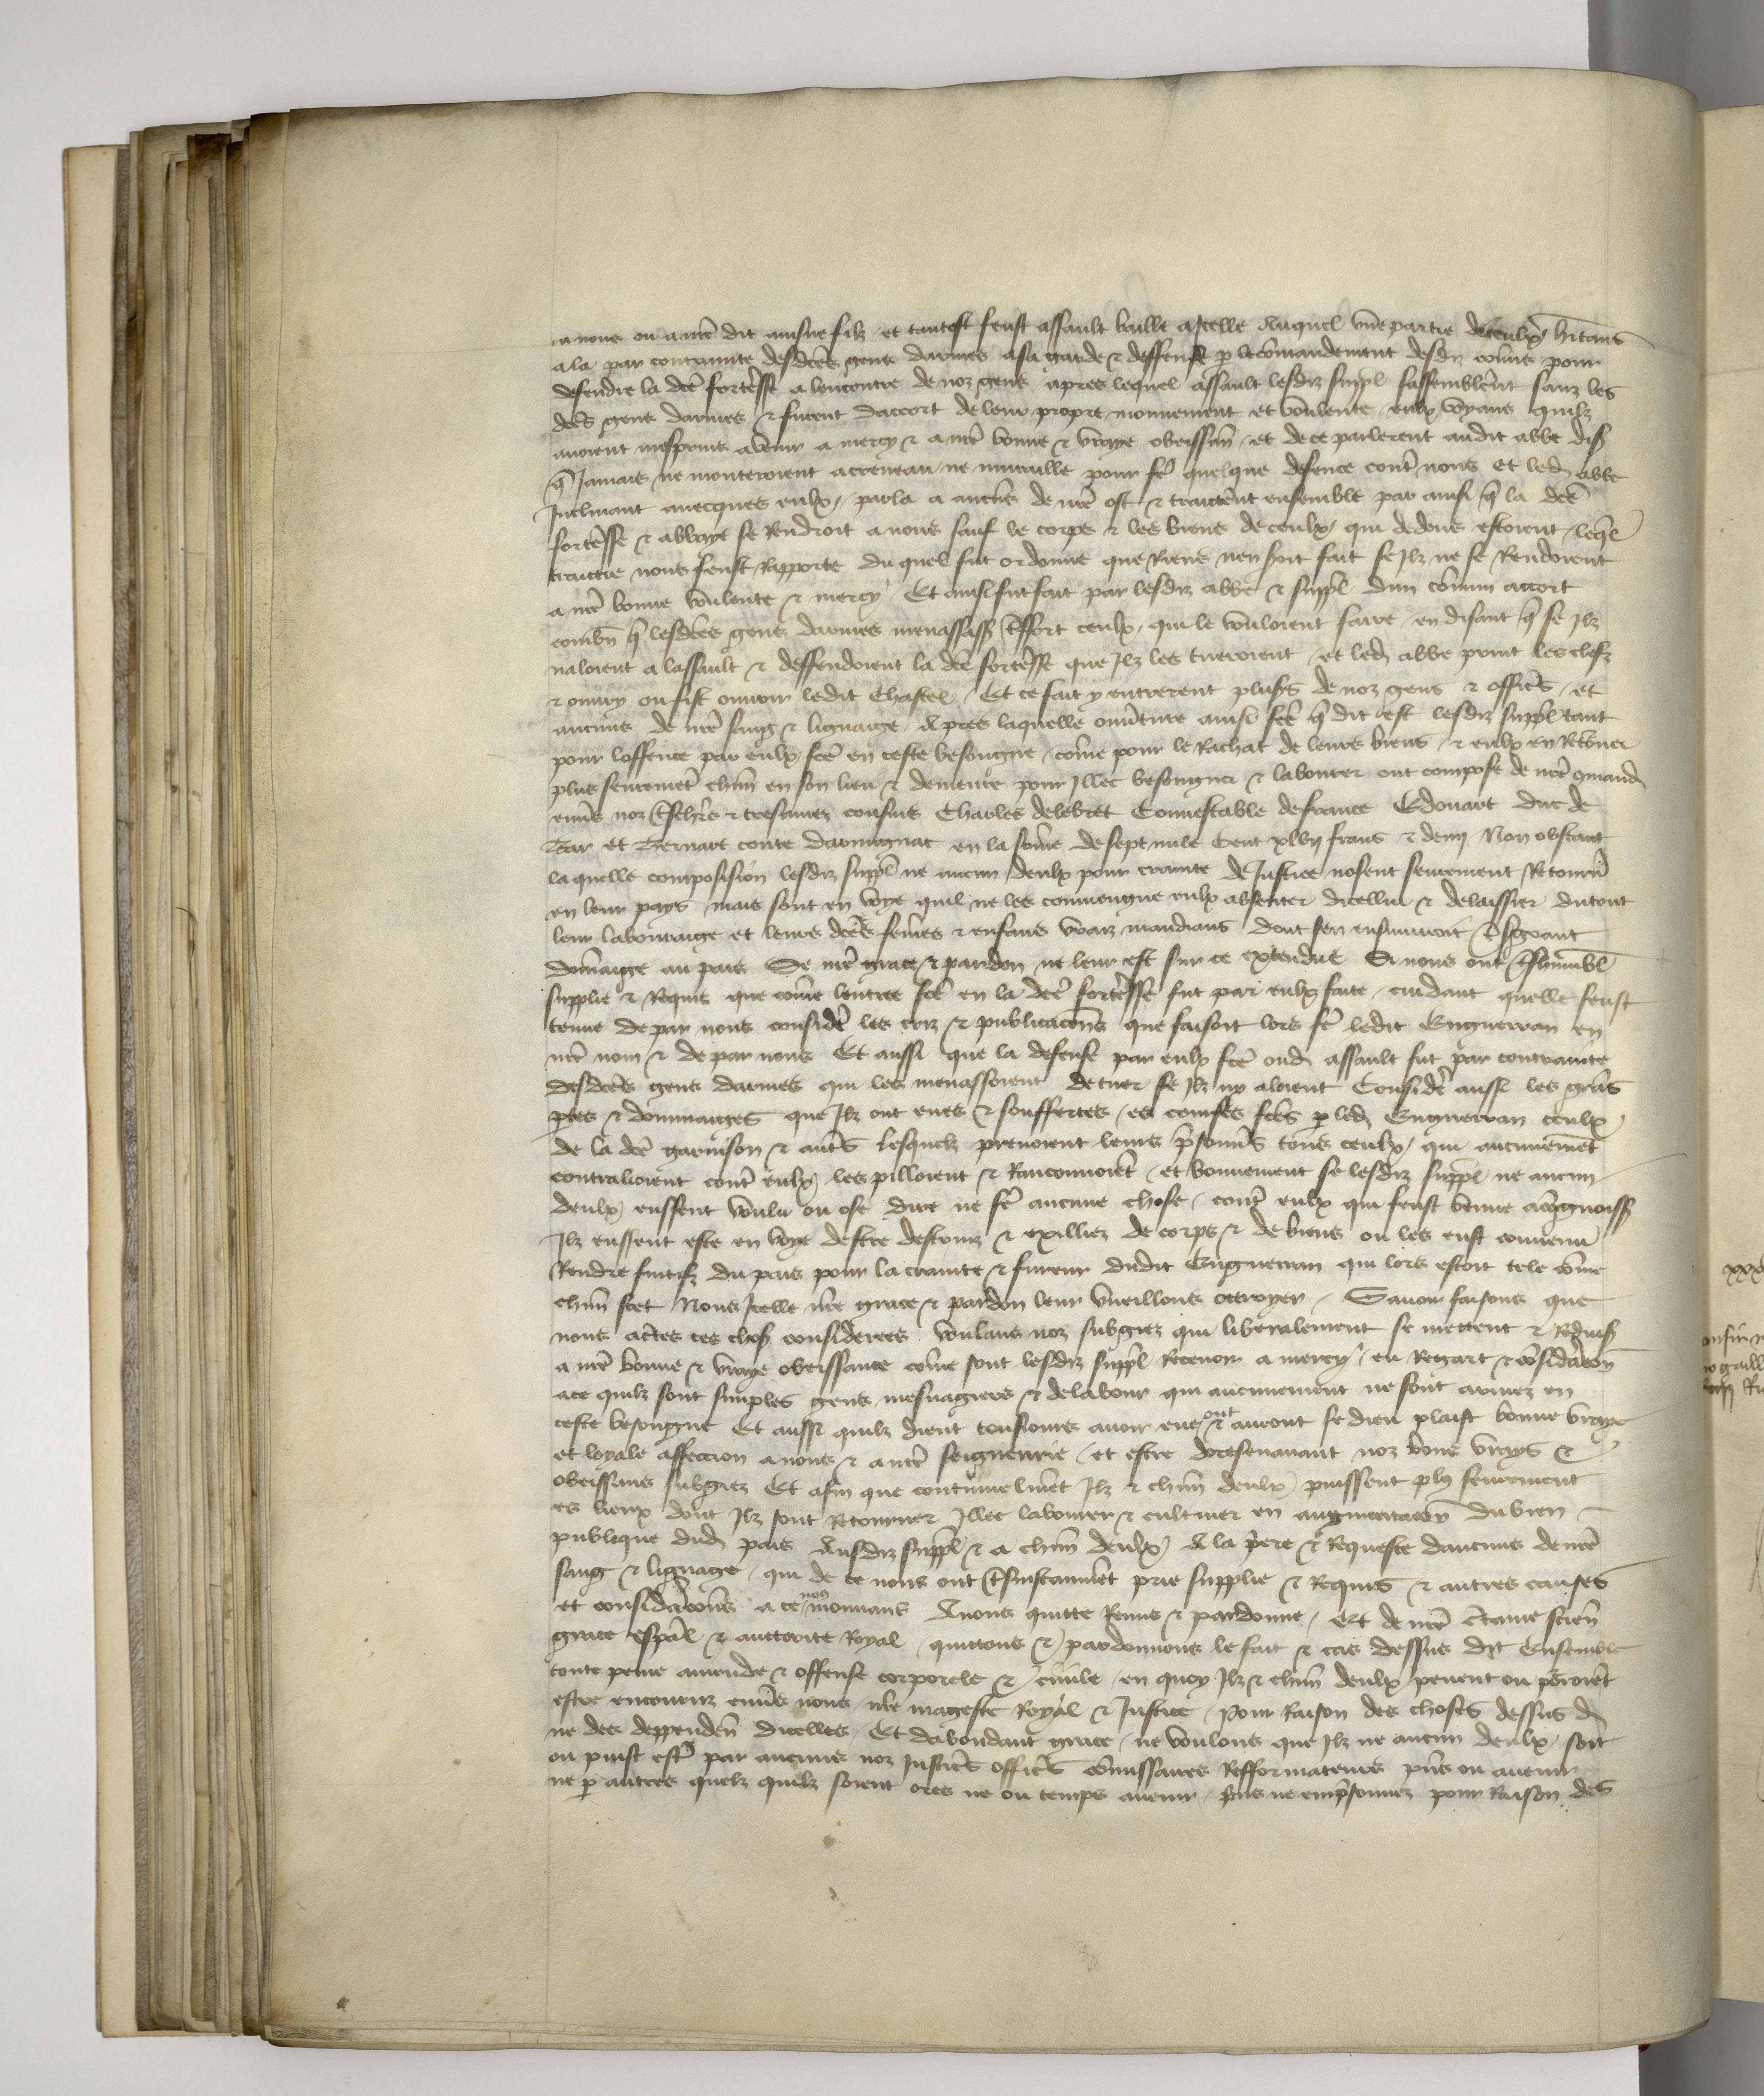 a nous ou a nrẽ dit ainsne filz et tantost feust assault baille a jcelle Auquel vne partie diceulx hitans
ala par contrainte desdctẽs gens darmes a sa garde & deffense p le cõmandement desdiz cõmis pour
defendre la dctẽ fortẽsse a lencontre de noz gens apres lequel assault lesdiz suppl̃ sassemblerẽt sanz les
dctẽs gens darmes & furent daccort de leur propre mouuement et voulente eulx voyans quilz
auoient mesprins a venir a mercy & a nrẽ bonne & vraye obeissan̄ et de ce parlerent audit abbe dis
q̃ Jamais ne monteroient a creneau ne muraille pour fẽ quelque defence contr̃ nous et led abbe
Inclinant auecques eulx parla a aucũs de nrẽ ost & traictẽrẽt ensemble par ainsi q̃ la dctẽ
fortẽsse & abbaye se Rendroit a nous sauf le corps & les biens de ceulx qui dedens estoient leq̃l
traictie nous feust Rapporte du quel fut ordonne que Riens nen soit fait se Jlz ne se Rendoient
a nrẽ bonne voulente & mercy Et ainsi fut fait par lesdiz abbe & suppl̃ dun cõmun accort
combn̄ q̃ lesdctẽs gens darmes menassass t̃sfort ceulx qui le vouloient faire en disant q̃ se Jlz
naloient a lassault & deffendoient la dctẽ fortẽsse que Jlz les tueroient et led abbe print les clefz
& ouury ou fist ouurir ledit Chastel Et ce fait y entrerent plusrs̃ de noz gens & officr̃s et
aucuns de nrẽ sang & lignaige Apres laquelle ouũture ainsi fctẽ q̃ dit est lesdiz suppl̃ tant
pour loffence par eulx fctẽ en ceste besongne cõme pour le Rachat de leurs biens & eulx en Retorner
plus seuremet̃ chm̃ en son lieu & demeure pour Jllec besongner & labourer ont compose de nrẽ cõmand
enuẽs noz t̃schrs̃ & tresamez cousins Charles delebret Connestable de france Edouart duc de
Bar et Bernart conte darmignac en la sõme de sept mile Cent xlvij frans & demj Non obstant
la quelle composision lesdiz suppl̃ ne aucun deulx pour crainte de Justice nosent seurement Retournẽ
en leur pays mais sont en voye quil ne les conuiengne eulx absenter dicellui & delaissier du tout
leur labouraige et leurs dctẽs femẽs & enfans voirz mandians dont sen ensuiuroit t̃sgrant
dõmaige au pais Se nrẽ grace & pardon ne leur est sur ce extendue Si nous ont t̃shũmbl
supplie & Requis que cõme lentree fctẽ en la dctẽ fortẽsse fut par eulx faite cuidant quelle feust
tenue de par nous considẽ les criz & publicacõns que faisoit lors fẽ ledit Enguerran en
nrẽ nom & de par nous Et aussi que la defense par eulx fctẽ oud assault fut par contrainte
desdctẽs gens darmes qui les menassoient de tuer se Jlz ny aloient Considẽ aussi les grãs
ptes & dommaiges que Jlz ont eues & souffertes es courses fctẽs p led Enguerran ceulx
de la dctẽ garnison & autr̃s lesquelz prenoient leurs p̃sonnrs̃ tous ceulx qui aucunemet̃
contralioient contr̃ eulx les pilloient & Ranconnoiet̃ et bonnement se lesdiz suppl̃ ne aucun
deulx eussent voulu ou ose dire ne fẽ aucune chose contr̃ eulx qui feust venue a cõgnoiss
Jlz eussent este en voye destre destruiz & exilliez de corps & de biens ou les eust conuenu
Rendre fuitifz du pais pour la crainte & fureur dudit Enguerran qui lors estoit tele cõme
chm̃ scet Nous Jcelle nrẽ grace & pardon leur vueillons octroyer Sauoir faisons que
nous actẽs ces chos considerees voulans noz subgiez qui liberalement se mettent & Reduiss
a nrẽ bonne & vraye obeissance cõme sont lesdiz suppl̃ Receuoir a mercy eu Regart & cõsidãcon̄
a ce quilz sont simples gens mesnagiers & de labour qui aucunement ne sont armez en
ceste besongne Et aussi quilz dient tousiours auoir eue ont & auront se dieu plaist bonne vraye
et loyale affection a nous & a nrẽ seigneurie et estre doresenauant noz bons vrays &
obeissans subgiez Et afin que continuelmet̃ Jlz & chm̃ deulx puissent pl9 seurement
es lieux dont Jlz sont Retourner Jllec labourer & cultiuer en augmentacion du bien
publique dud pais Ausdiz suppl̃ & a chm̃ deulx A la p̃ere & Requeste daucuns de nrẽ
sang & lignage qui de ce nous ont t̃sinstamet̃ prie supplie & Requis & autres causes
et considãcõns a ce nous mouuans Auons quitte Remis & pardonne Et de nrẽ c̃taine scien̄
grace espãl & auctorite Royal quittons & pardonnons le fait & cas dessus dit Ensemble
toute peine amende & offense corporele & ciuile en quoy Jlz & chm̃ deulx peuent ou porroiet̃
estre encouruz enuẽs nous nrẽ mageste Royal & Justice pour Raison des choses dessus d
ne des deppenden̄ dicelles Et dabondant grace ne voulons que Jlz ne aucun deulx soit
ou puist estr̃ par aucuns noz Justicr̃s officr̃s cõmissaires Refformateurs pñs ou auenir
ne p autres quelz quilz soient ores ne ou temps auenir prins ne emp̃sonnez pour Raison des